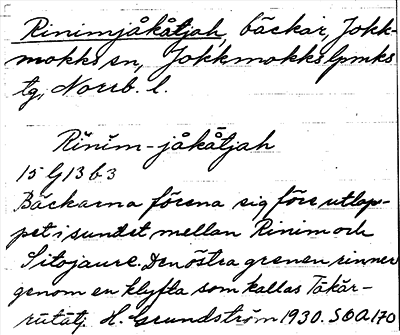 Rinimjåkåtjah, bäckar, Jokk-
mokks sn, Jokkmokks lpmks
tg, Norrb. l.
Rinim-jåkåtjah
15 G 13 b 3
Bäckarna förena sig före utlop-
pet i sundet mellan Rinim och
Sitojaure. Den östra grenen rinner
genom en klyfta som kallas Tåkår-
rutåtj. H. Grundström 1930. SOA 170